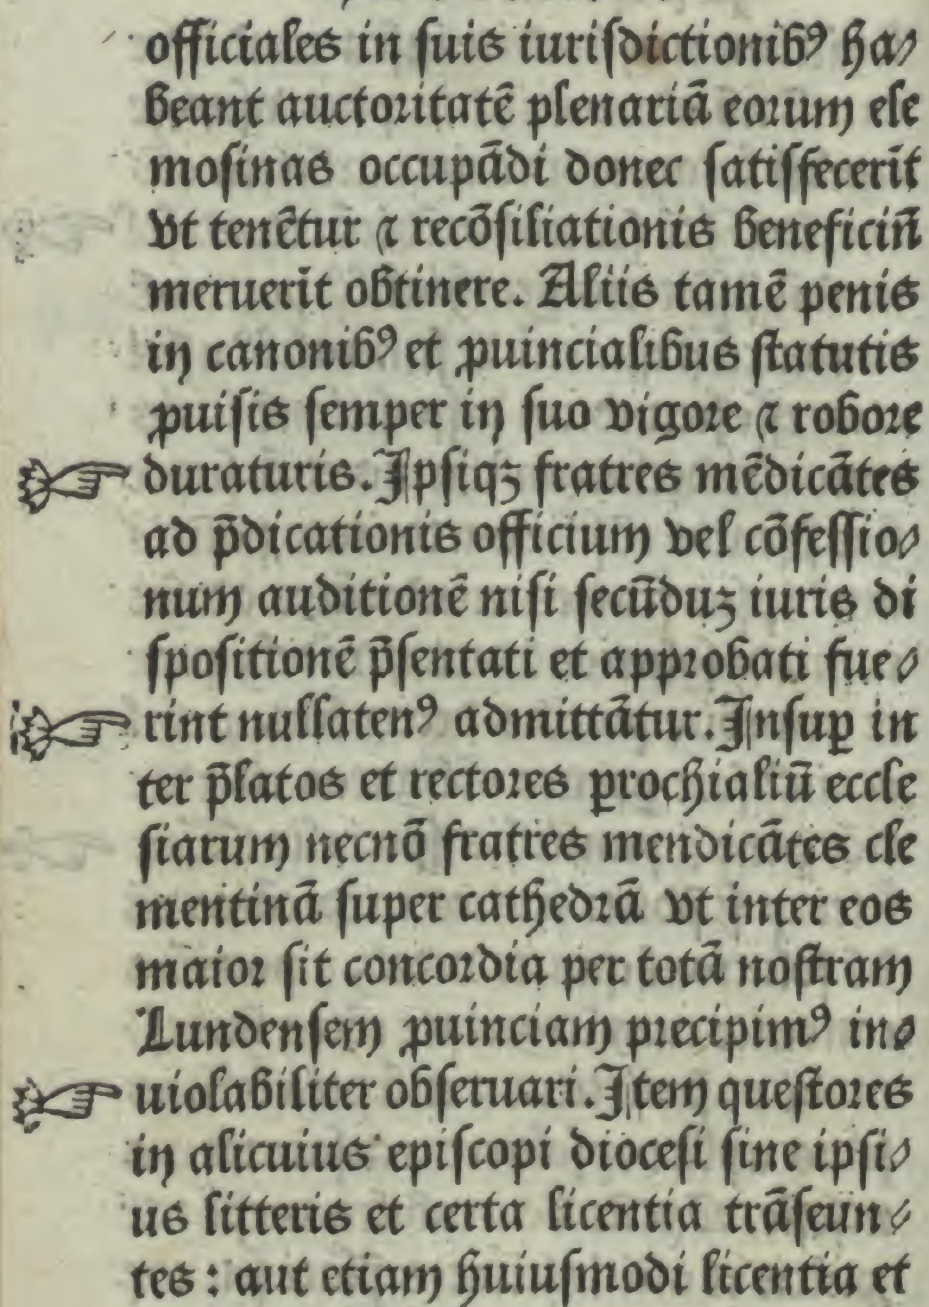 officiales in suis iurisdictionibꝰ ha⸗
beant auctoritatē plenariā eorum ele
mosinas occupādi donec satisfecerīt
vt tenētur ⁊ recōsiliationis beneficiū
meruerīt obtinere. Aliis tamē penis
in canonibꝰ et ꝓuincialibus statutis
ꝓuisis semper in suo vigore ⁊ robore
duraturis. Ipsiqꝫ fratres mēdicātes
ad p̄dicationis officium vel cōfessio⸗
num auditionē nisi secūduꝫ iuris di
spositionē p̄sentati et approbati fue⸗
rint nullatenꝰ admittātur. Insuꝑ in
ter p̄latos et rectores ꝑrochialiū eccle
siarum necnō fratres mendicātes cle
mentinā super cathedrā vt inter eos
maior sit concordia per totā nostram
Lundensem ꝓuinciam precipimꝰ in⸗
uiolabiliter obseruari. Item questores
in alicuius episcopi diocesi sine ipsi⸗
us litteris et certa licentia trāseun⸗
tes : aut etiam huiusmodi licentia et